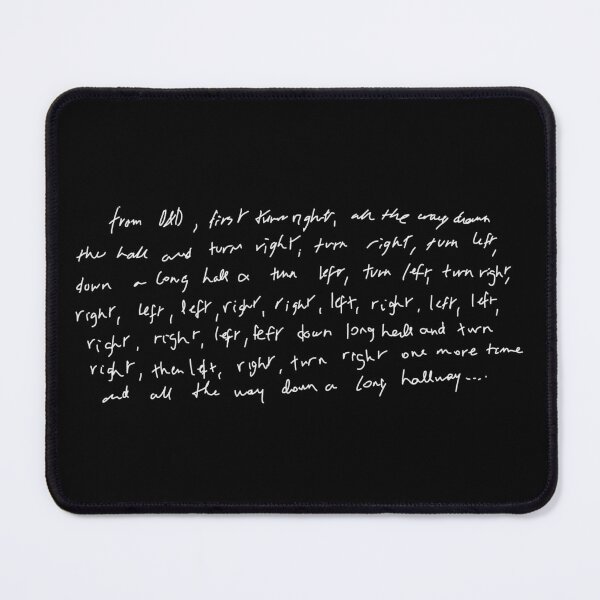 from O&D, first turn right, all the way down
the hall and turn right, turn right, turn left,
down a long hall & turn left, turn left, turn right,
right, left, left, right, right, left, right, left, left,
right, right, left, left down long hall and turn
right, then left, right, turn right one more time
and all the way down a long hallway....